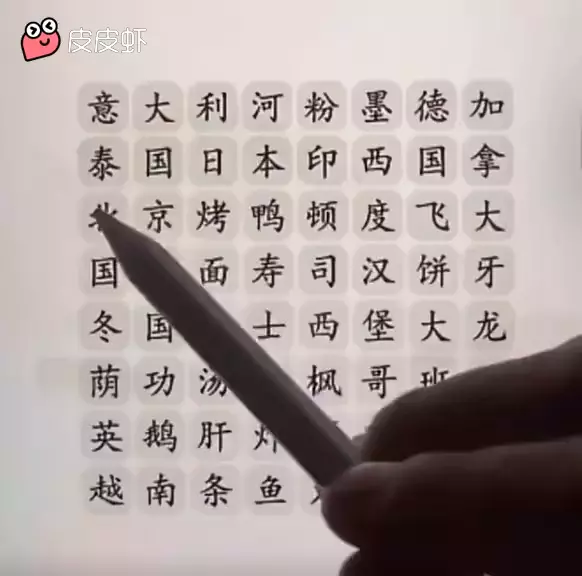 皮皮虾
意大利河粉墨德加
泰国日本印西国拿
京烤鸭顿度飞大
国面寿司汉饼牙
冬国士西堡大龙
荫功汤枫哥
英鹅肝炸
越南条鱼